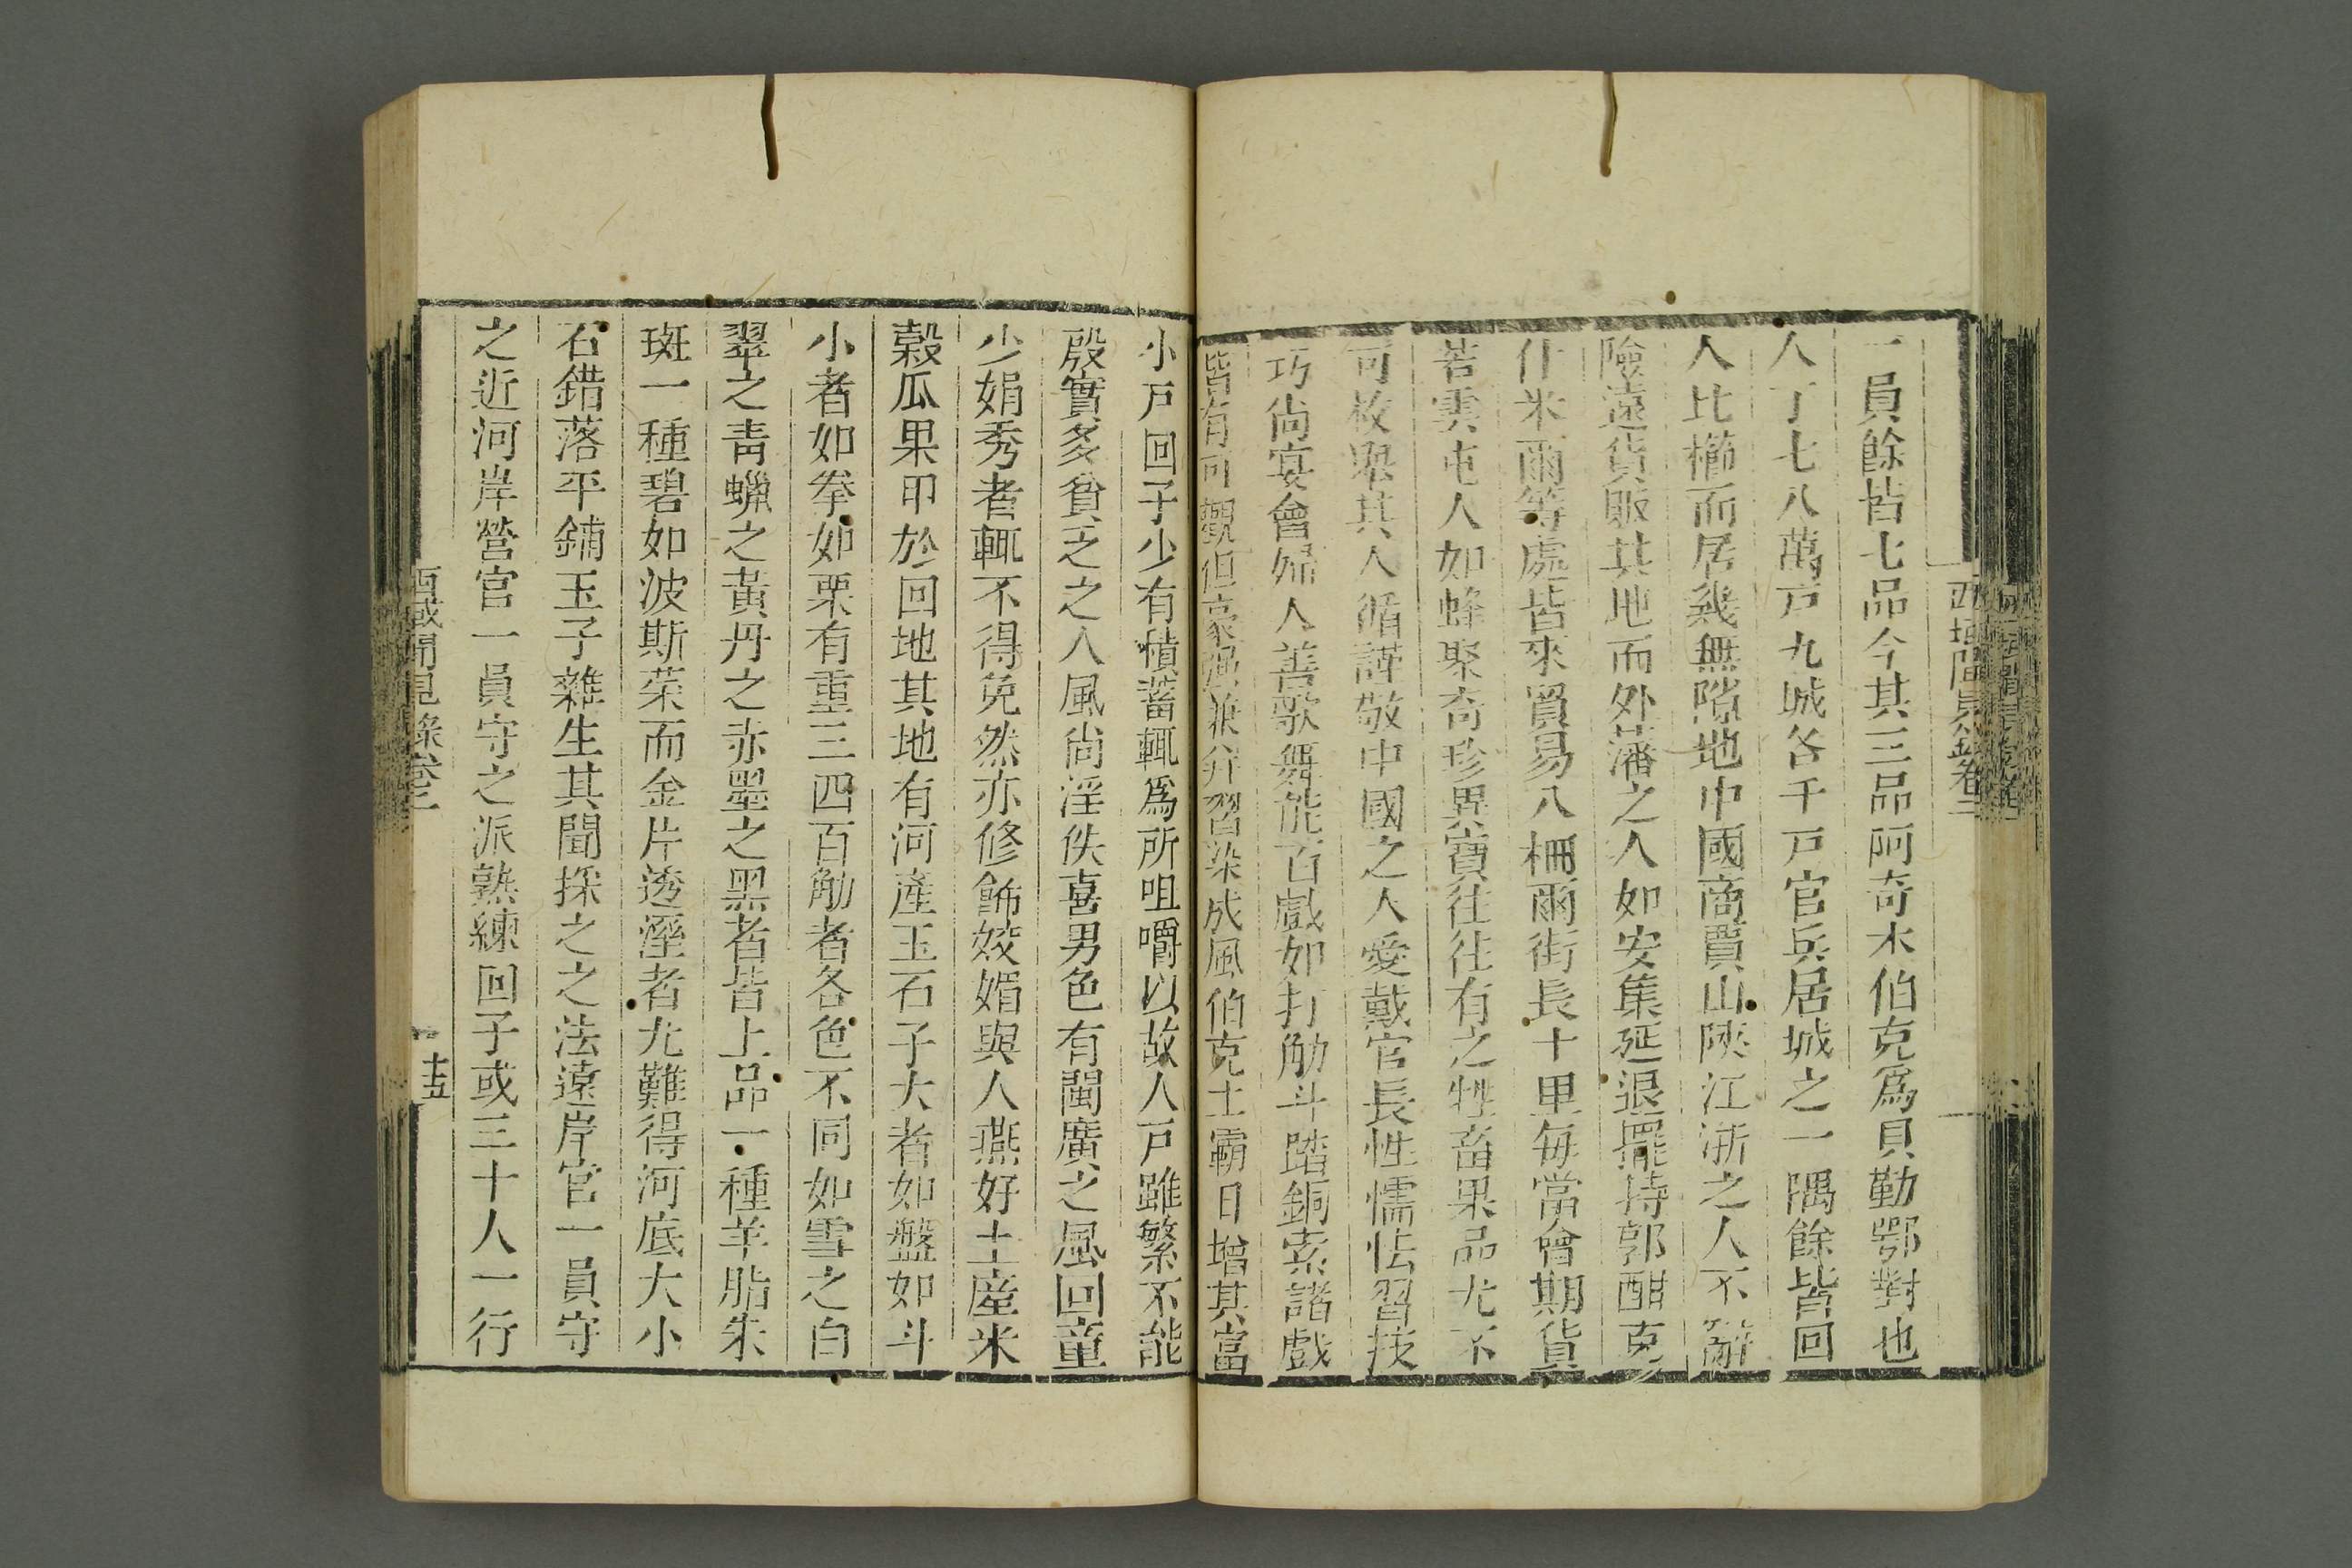 西域聞見錄卷二
一員餘皆七品今其三品阿奇木伯克爲貝勒鄂對也
人丁七八萬戸九城各千戸官兵居城之一隅餘皆回
人比櫛而居幾無隙地中國商賈山陝江浙之人不辭
險遠貨販其地而外藩之人如安集延退擺特郭酣克
什米爾等處皆來貿易八柵爾街長十里每當會期貨
若雲屯人如蜂聚奇珍異寶往往有之牲畜果品尤不
可枚舉其人循謹敬中國之人愛戴官長性懦怯習技
巧尚宴會婦人善歌舞能百戲如打觔斗踏銅索諸戲
皆有可觀但豪强兼并習染成風伯克土霸日增其富
小戸回子少有積蓄輒爲所咀嚼以故人戸雖繁不能
殷實多貧乏之人風尚淫佚喜男色有閩廣之風回童
少娟秀者輒不得免然亦修飾姣媚與人燕好土產米
穀瓜果甲於回地其地有河產玉石子大者如盤如斗
小者如拳如栗有重三四百觔者各色不同如雪之白
翠之靑蠟之黃丹之赤墨之黑者皆上品一種羊脂朱
斑一種碧如波斯菜而金片透溼者尤難得河底大小
石錯落平鋪玉子雜生其間採之之法遠岸官一員守
之近河岸營官一員守之派熟練回子或三十人一行
西域聞見錄卷二
十五